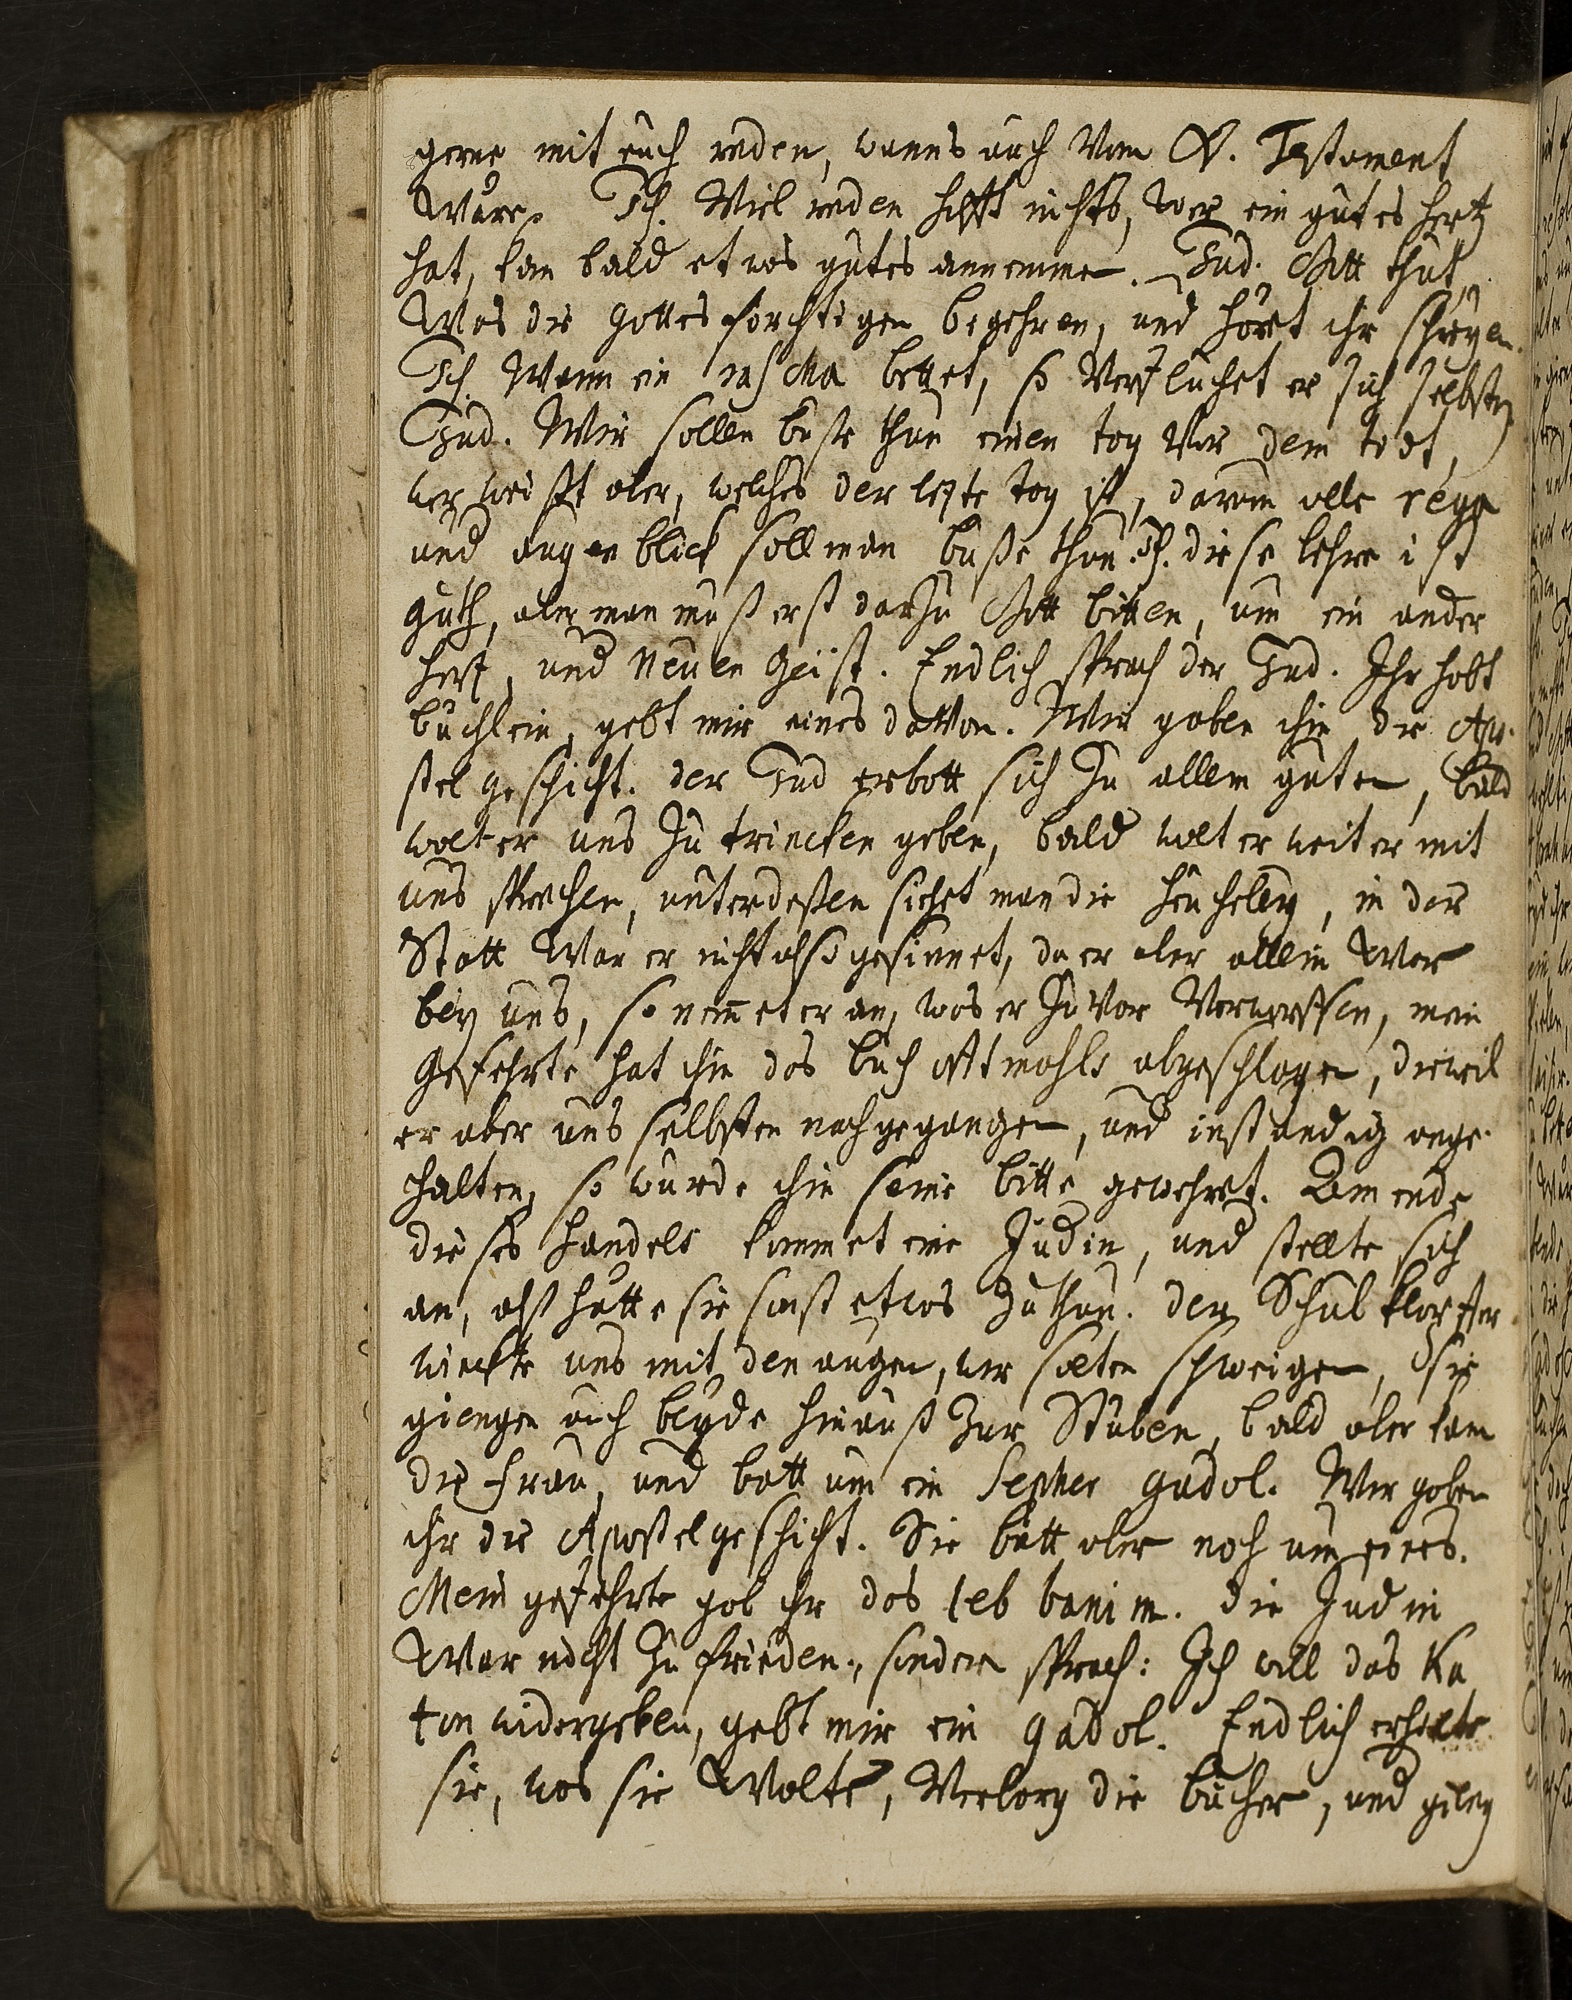 gerne mit euch reden, wanns auch Vom N. Testament
Wäre. Ich. Viel reden hilfft nichts, wer ein gutes hertz
hat, kan bald etwas gutes annemmen. Jud. Gott thut,
Was die Gottesförchtigen begehren, und höret ihr schreyen.
Ich. Wann ein rascha bettet, so Verfluchet er sich selbsten
Jud. Wir sollen buße thun einen tag Vor dem todt,
wer weißt aber, welches der lezte tag ist, darum alle rega
und augenblick soll man buße thun. Ich. diese lehre ist
guth, aber man muß erst darzu Gott bitten, um ein ander
hertz, und neuen Geist. Endlich sprach der Jud. Ihr habt
büchlein, gebt mir eines davon. Wir gaben ihm die Apo-
stelgeschicht. der Jud erbott sich Zu allem guten, bald
wolt er uns Zu trincken geben, bald wolt er weiter mit
uns sprechen, unterdeßen siehet man die heucheley, in der
Statt War er nicht also gesinnet, da er aber allein War
bey uns, so nem̄et er an, was er Zuvor Verworffen, mein
Gefehrte hat ihm das buch offtmahls abgeschlagen, dieweil
er aber uns selbsten nachgegangen, und inständig ange-
halten, so wurde ihm seine bitte gewehret. Am ende
dieses handels kommet eine Jüdin, und stellte sich
an, alß hätte sie sonst etwas Zu thun. der Schulklopffer
winckte uns mit den augen, wir solten schweigen, Sie
giengen auch beyde hinauß Zur Stuben, bald aber kam
die frau, und batt um ein Sepher gadol. Wir gaben
ihr die Apostelgeschicht. Sie batt aber noch um eines.
Mein gefehrte gab ihr das leb banim. die Jüdin
War nicht Zu frieden, sondern sprach: Ich will das Ka
ton widergeben, gebt mir ein gadol. Endlich erhielte
sie, was sie Wolte, Verbarg die bücher, und gieng